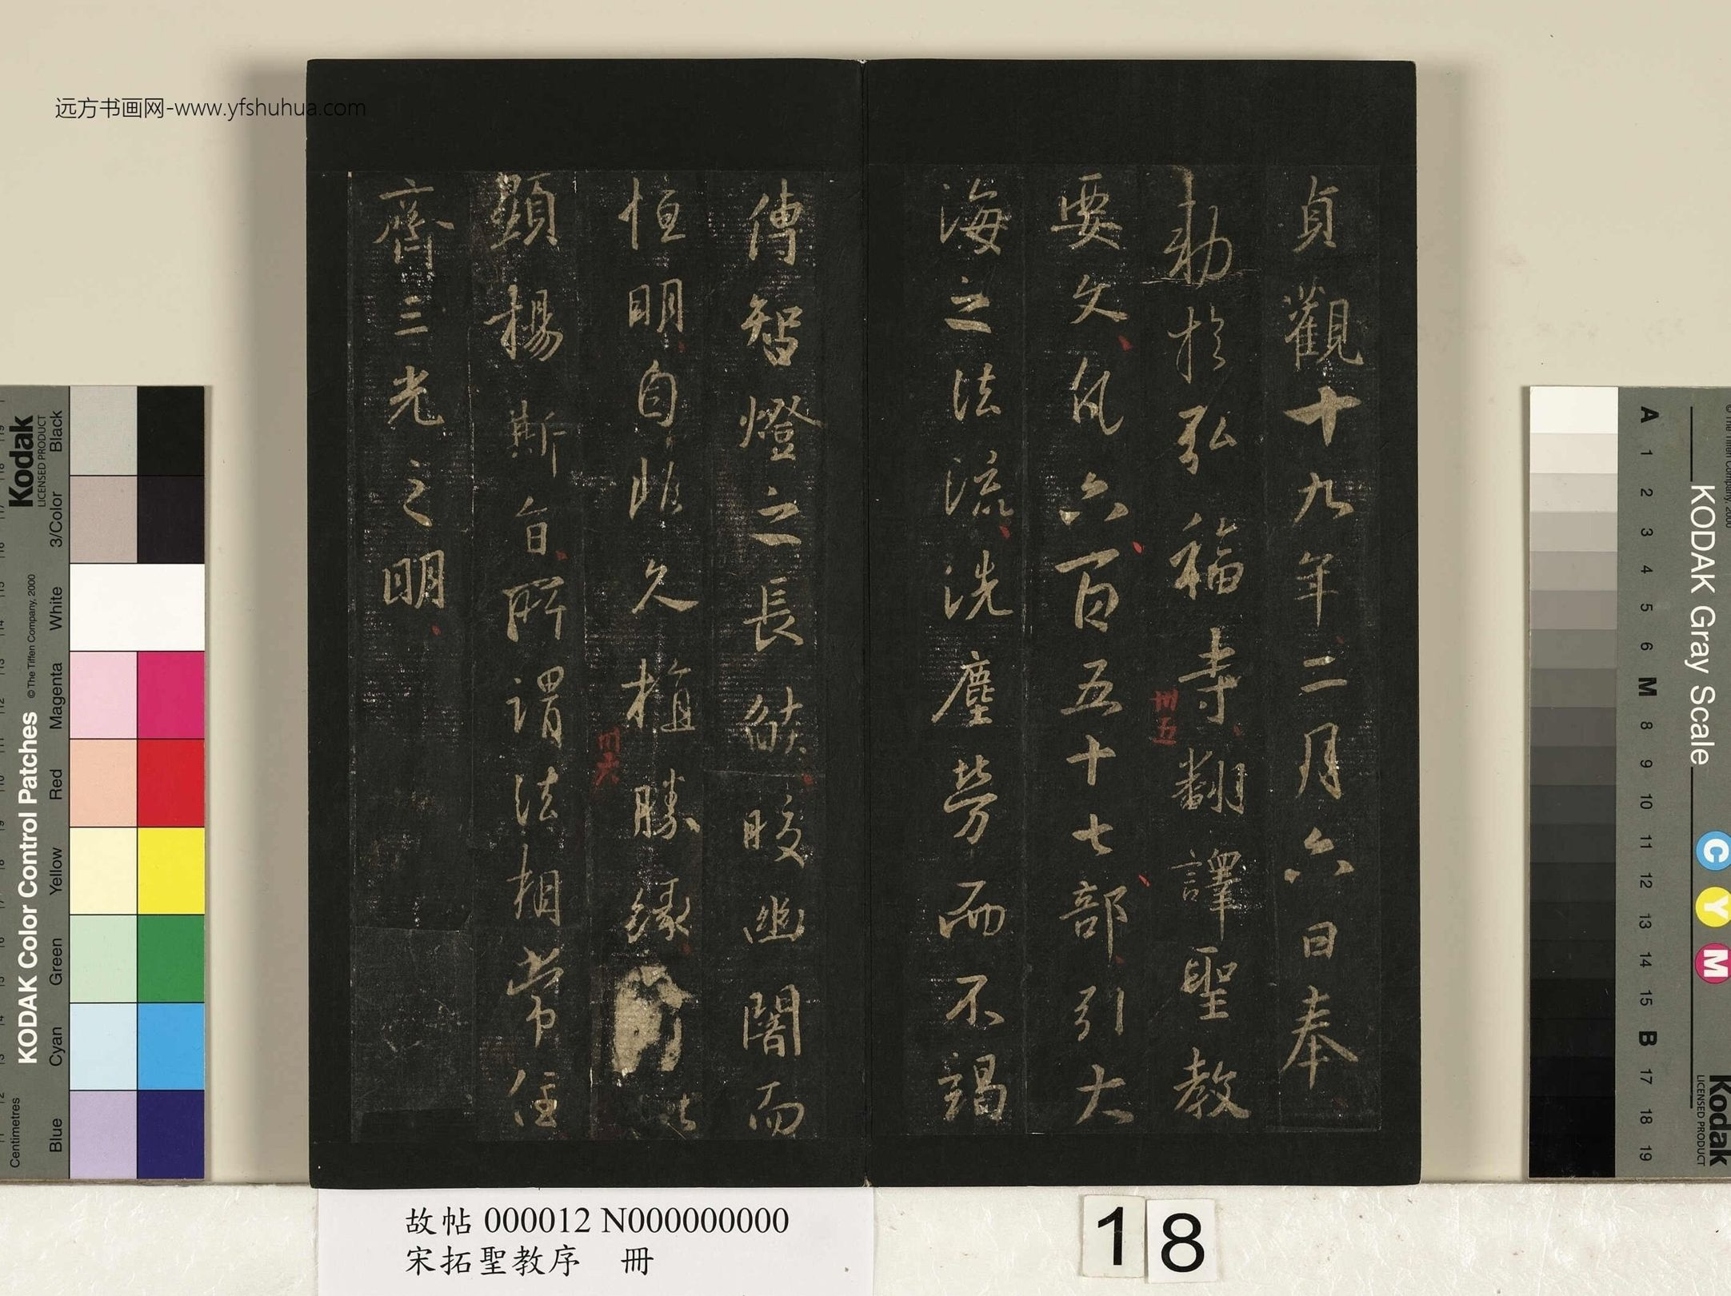 远方书画网-www.yfshuhua.com
貞觀十九年二月六日奉
勅於弘福寺翻譯聖教
卅五
要文凡六百五十七部引大
海之法流洗塵勞而不竭
傳智燈之長焰皎幽闇而
恒明自非久植勝緣何以
卅六
顯揚斯旨所謂法相常住
齊三光之明
故帖 000012 N000000000
宋拓聖教序 冊
18
Kodak
LICENSED PRODUCT
KODAK Color Control Patches
© The Tiffen Company, 2000
Centimetres
Blue Cyan Green Yellow Red Magenta White 3/Color Black
KODAK Gray Scale
A 1 2 3 4 5 6 M 8 9 10 11 12 13 14 15 B 17 18 19
C Y M
Kodak
LICENSED PRODUCT